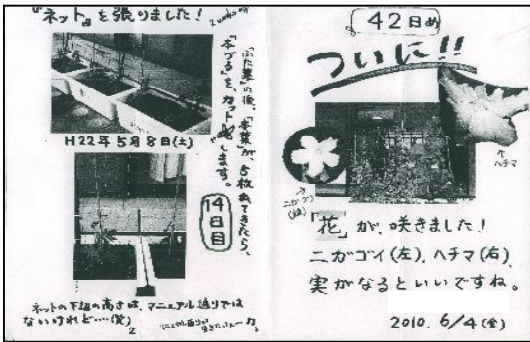 『ネット』を張りました!
H22年5月8日(土)
「ふた葉」の後、「本葉」が、5枚出てきたら、
「本づる」を、カットします。
14日目
ネットの下超の高さは、マニュアル通りでは
ないけれど…(笑)
2
42日め
ついに!!
ヘチマ
ニガゴイ
「花」が、咲きました!
ニガゴイ(左)、ヘチマ(右)、
実がなるといいですね。
2010. 6/4(金)